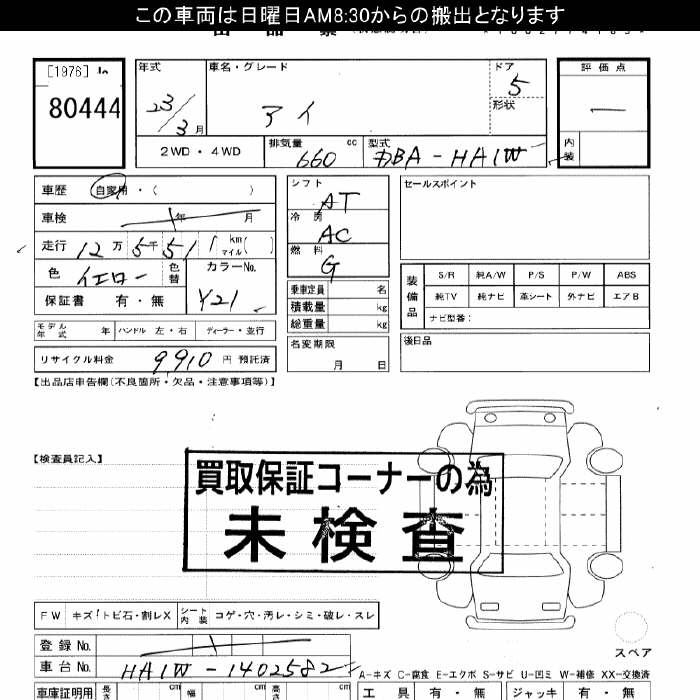 この車両は日曜日AM8:30からの搬出となります
[1976]
80444
年式 23/3月
車名・グレード アイ
ドア 5
形状
評価点 —
内装
2WD・4WD
排気量 660 cc
型式 DBA-HA1W
車歴 自家用・( )
車検 年 月
走行 12万 5千 51 km マイル( )
色 イエロー 色替
カラーNo. Y21
保証書 有・無
シフト AT
冷房 AC
燃料 G
乗車定員 名
積載量 kg
総重量 kg
セールスポイント
装備品
S/R 純A/W P/S P/W ABS
純TV 純ナビ 革シート 外ナビ エアB
ナビ型番:
モデル年式 年 ハンドル 左・右 ディーラー・並行
リサイクル料金 9,910 円 預託済
名変期限 月 日
後日品
【出品店申告欄(不良箇所・欠品・注意事項等)】
【検査員記入】
買取保証コーナーの為
未検査
FW キズ!トビ石・割レX シート内装 コゲ・穴・汚レ・シミ・破レ・スレ
スペア
登録No.
車台No. HA1W-1402582
A-キズ C-腐食 E-エクボ S-サビ U-凹ミ W-補修 XX-交換済
車庫証明用 長さ cm 幅 cm 高さ cm
工具 有・無 ジャッキ 有・無